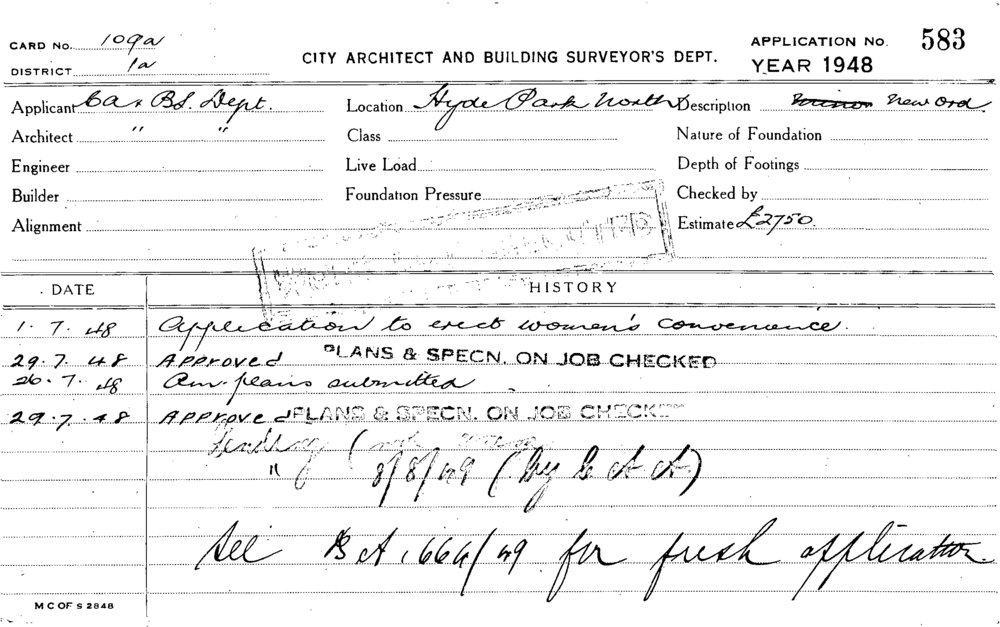 CARD No. 109a
DISTRICT 1a
CITY ARCHITECT AND BUILDING SURVEYOR'S DEPT.
APPLICATION No. 583
YEAR 1948
Applicant Ca & BS. Dept. Location Hyde Park North Description New Ord.
Architect " " Class Nature of Foundation
Engineer Live Load Depth of Footings
Builder Foundation Pressure Checked by
Alignment Estimate £2750.
DATE HISTORY
1.7.48 Application to erect women's convenience.
29.7.48 Approved PLANS & SPECN. ON JOB CHECKED
26.7.48 Am. plans submitted
29.7.48 Approved PLANS & SPECN. ON JOB CHECKE
" 8/8/49 (By C A A)
See BA. 666/49 for fresh application.
M C OF S 2848